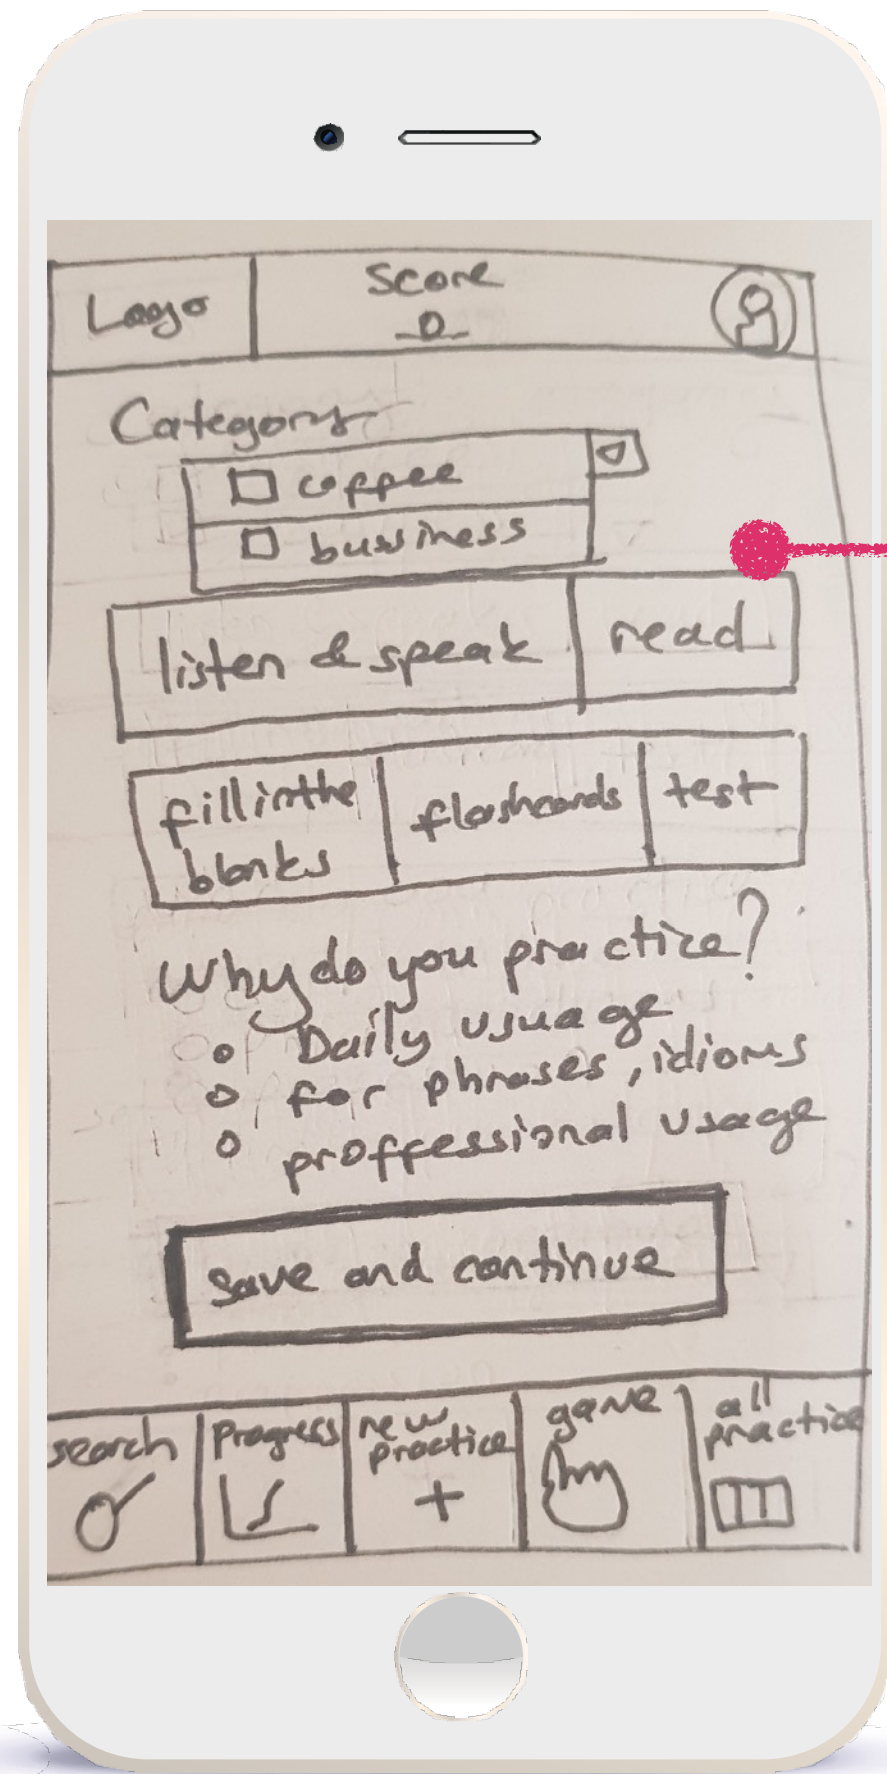 Logo
Score
0
Category
coffee
bussiness
listen & speak
read
fill in the
blanks
flashcards
test
Why do you practice?
Daily usuage
for phrases, idioms
proffessional usage
save and continue
search
Progress
new
practice
+
game
all
practice